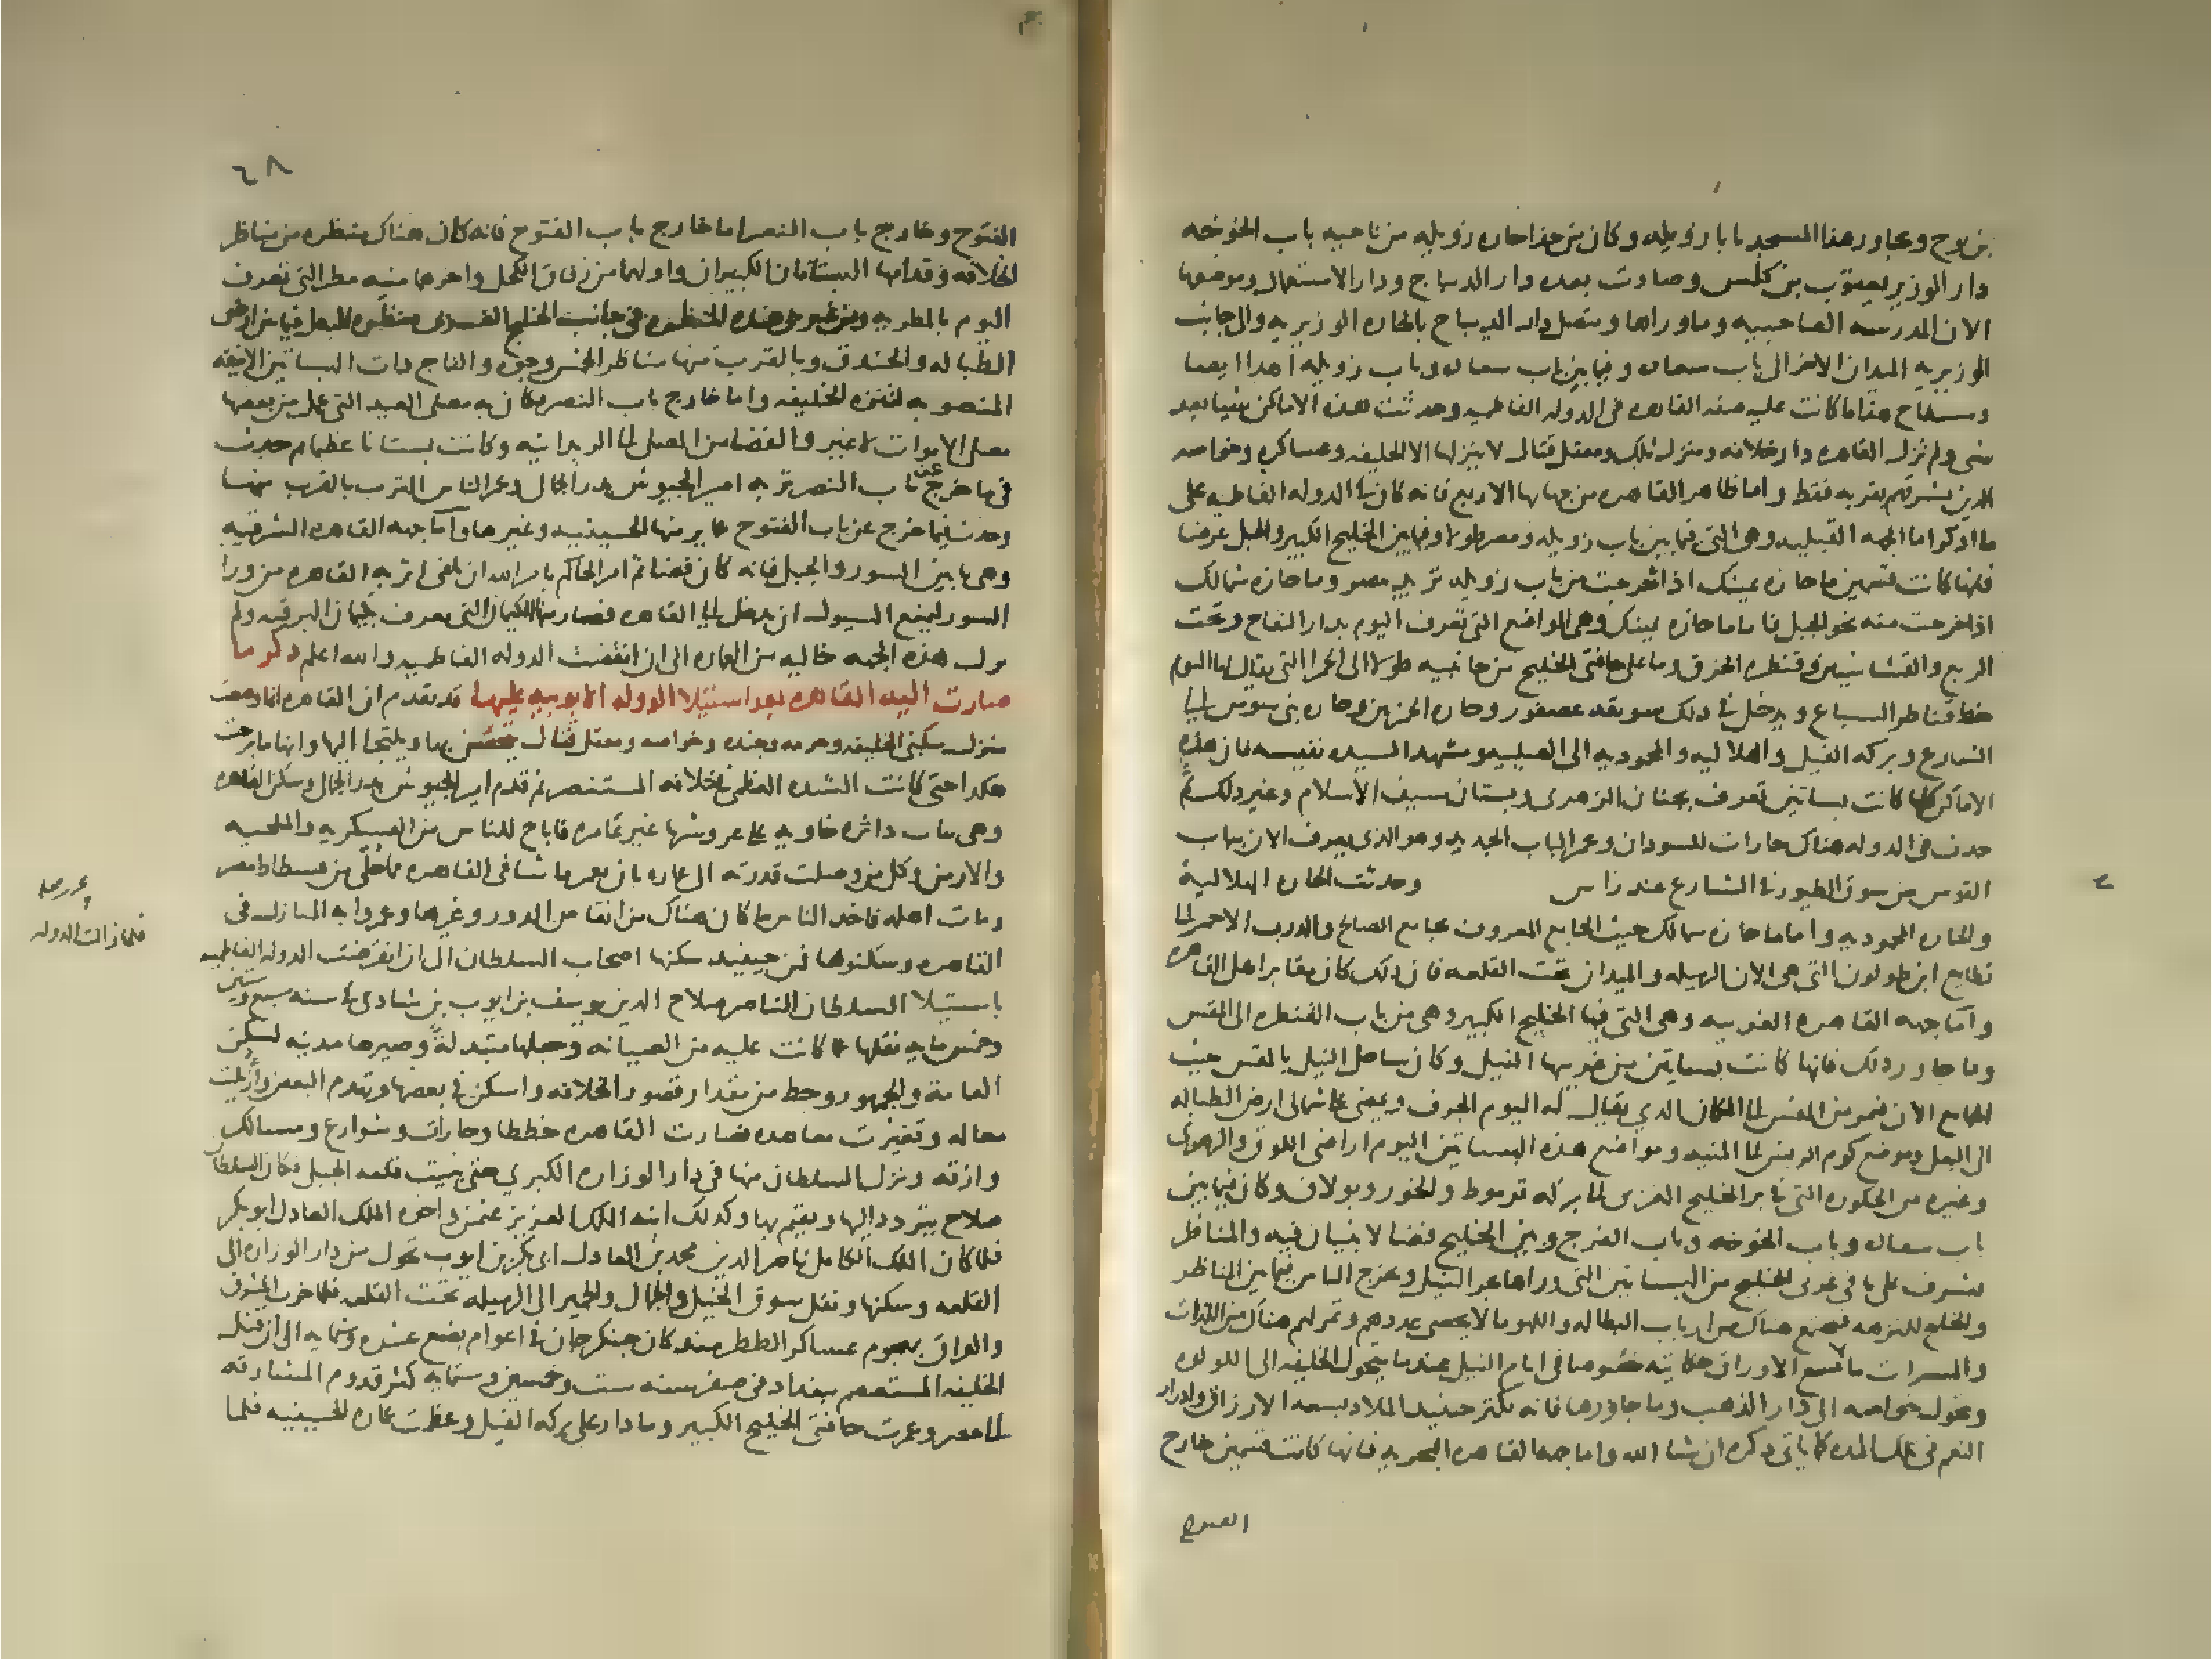 بن نوح ويجاور هذا المسجد بابا زويله وكان من حذا حاره زويله من ناحيه باب الخوخه
دار الوزير يعقوب بن كلس وصارت بعده دار الديباج ودار الاستعمال وموضعها
الان المدرسه الصاحبيه وما وراها ويتصل دار الديباج بالحاره الوزيريه والى جانب
الوزيريه الميدان الاخر الى باب سعاده وفيما بين باب سعاده وباب زويله اهرا ايضا
وسطاح هذا ما كانت عليه صفه القاهره فى الدوله الفاطميه وحدثت هذه الاماكن شيا بعد
شى ولم تزل القاهره دار خلافه ومنزل ملك ومعقل قتال لا ينزلها الا الخليفه وعساكره وخواصه
الذين يشرفهم بقربه فقط واما ظاهر القاهره من جهاتها الاربع فانه كان فى الدوله الفاطميه على
ما اذكر اما الجهه القبليه وهى التى فيما بين باب زويله ومصر طولا وفيما بين الخليج الكبير والجبل عرضا
فانها كانت قسمين ما حازه يمينك اذا خرجت من باب زويله تريد مصر وما حازه شمالك
اذا خرجت منه نحو الجبل فاما ما حازه يمينك وهى المواضع التى تعرف اليوم بدار التفاح وتحت
الربع والقشاشين وقنطره الخرق وما على حافتى الخليج من جانبيه طولا الى الحمرا التى يقال لها اليوم
خط قناطر السباع ويدخل فى ذلك سويقه عصفور وحاره الحمزيين وحاره بنى سوس الى
الشارع وبركه الفيل والهلاليه والمحموديه الى الصليبه ومشهد السيده نفيسه فان هذه
الاماكن كلها كانت بساتين تعرف بجنان الزهرى وبستان سيف الاسلام وغير ذلك ثم
حدث فى الدوله هناك حارات للسودان وعمر الباب الجديد وهو الذى يعرف الان بباب
القوس من سوق الطيور فى الشارع عند راس وحدثت الحاره الهلالية
والحاره المحموديه واما ما حازه شمالك حيث الجامع المعروف بجامع الصالح والدرب الاحمر الى
قطايع ابن طولون التى هى الان الرميله والميدان تحت القلعه فان ذلك كان مقابر اهل القاهره
واما جهه القاهره الغربيه وهى التى فيها الخليج الكبير وهى من باب القنطره الى المقس
وما جاور ذلك فانها كانت بساتين من غربيها النيل وكان ساحل النيل بالمقس حيث
الجامع الان فيمر من المقس الى المكان الذي يقال له اليوم الجرف ويمضى على شمالى ارض الطباله
الى البعل وموضع كوم الريش الى المنيه ومواضع هذه البساتين اليوم اراضى اللوق والزهرى
وغيره من الحكوره التى فى بر الخليج الغربى الى بركه قرموط والخور وبولاق وكان فيما بين
باب سعاده وباب الخوخه وباب الفرج وبين الخليج فضا لا بنيان فيه والمناظر
تشرف على ما فى غربى الخليج من البساتين التى وراها بحر النيل ويخرج الناس فيما بين المناظر
والخليج للنزهه فيجتمع هناك من ارباب البطاله واللهو ما لا يحصى عددهم وتمر لهم هناك من اللذات
والمسرات ما لا تسع الاوراق حكايته خصوصا فى ايام النيل عندما يتحول الخليفه الى اللولوه
ويتحول خواصه الى دار الذهب وما جاورها فانه يكثر حينيذ الملاد بسعه الارزاق وادرار
النعم فى تلك المده كما ياتى ذكره ان شا الله واما جهه القاهره البحريه فانها كانت قسمين خارج
الفتوح
٤٨
الفتوح وخارج باب النصر اما خارج باب الفتوح فانه كان هناك منظره من مناظر
الخلافه وقدامها البستانان الكبيران واولهما من زقاق الكحل واخرهما منيه مطر التى تعرف
اليوم بالمطريه ومن غربى هذه المنظره فى جانب الخليج الغربى منظره البعل فيما بين ارض
الطباله والخندق وبالقرب منها مناظر الخمس وجوه والتاج ذات البساتين الانيقه
المنصوبه لتنزه الخليفه واما خارج باب النصر فكان به مصلى العيد التى عمل من بعضها
مصلى الاموات لا غير والفضا من المصلى الى الريدانيه وكانت بستانا عظيما ثم حدث
فى ما خرج عن باب النصر تربه امير الجيوش بدر الجمالى وعمر الناس الترب بالقرب منها
وحدث فيما خرج عن باب الفتوح عماير منها الحسينيه وغيرها واما جهه القاهره الشرقيه
وهى ما بين السور والجبل فانه كان فضا ثم امر الحاكم بامر الله ان يلقى اتربه القاهره من ورا
السور ليمنع السيول ان تدخل الى القاهره فصار منها الكيمان التى تعرف بكيمان البرقيه ولم
تزل هذه الجهه خاليه من العماره الى ان انقضت الدوله الفاطميه والله اعلم ذكر ما
صارت اليه القاهره بعد استيلا الدوله الايوبيه عليها قد تقدم ان القاهره انما وضعت
منزل سكنى الخليفه وحرمه وجنده وخواصه ومعقل قتال يتحصن بها ويلتجا اليها وانها ما برحت
هكذا حتى كانت الشده العظمى فى خلافه المستنصر ثم قدم امير الجيوش بدر الجمالى وسكن القاهره
وهى يباب داثره خاويه على عروشها غير عامره فاباح للناس من العسكريه والملحيه
والارمن وكل من وصلت قدرته الى عماره بان يعمر ما شا فى القاهره مما خلى من فسطاط مصر
ومات اهله فاخذ الناس ما كان هناك من انقاض الدور وغيرها وعمروا به المنازل فى
القاهره وسكنوها فمن حينيذ سكنها اصحاب السلطان الى ان انقرضت الدوله الفاطميه
باستيلا السلطان الناصر صلاح الدين يوسف بن ايوب بن شادى فى سنه سبع وستين
وخمس مايه فنقلها عما كانت عليه من الصيانه وجعلها مبتذلة وصيرها مدينه لسكن
العامة والجمهور وحط من مقدار قصور الخلافه واسكن فى بعضها وتهدم البعض وازيلت
معالمه وتغيرت معاهده فصارت القاهره خططا وحارات وشوارع ومسالك
وازقه ونزل السلطان منها فى دار الوزاره الكبرى حتى بنيت قلعه الجبل فكان السلطان
صلاح يتردد اليها ويقيم بها وكذلك ابنه الملك العزيز عثمن واخوه الملك العادل ابو بكر
فلما كان الملك الكامل ناصر الدين محمد بن العادل ابى بكر بن ايوب تحول من دار الوزاره الى
القلعه وسكنها ونقل سوق الخيل والجمال والحمير الى الرميله تحت القلعه فلما خرب المشرق
والعراق بهجوم عساكر الططر منذ كان جنكزجان فى اعوام بضع عشره وستمايه الى ان قتل
الخليفه المستعصم ببغداد فى صفر سنه ست وخمسين وستمايه كثر قدوم المشارقه
الى مصر وعمرت حافتى الخليج الكبير وما دار على بركه الفيل وعظمت عماره الحسينيه فلما
فلما زالت الدوله